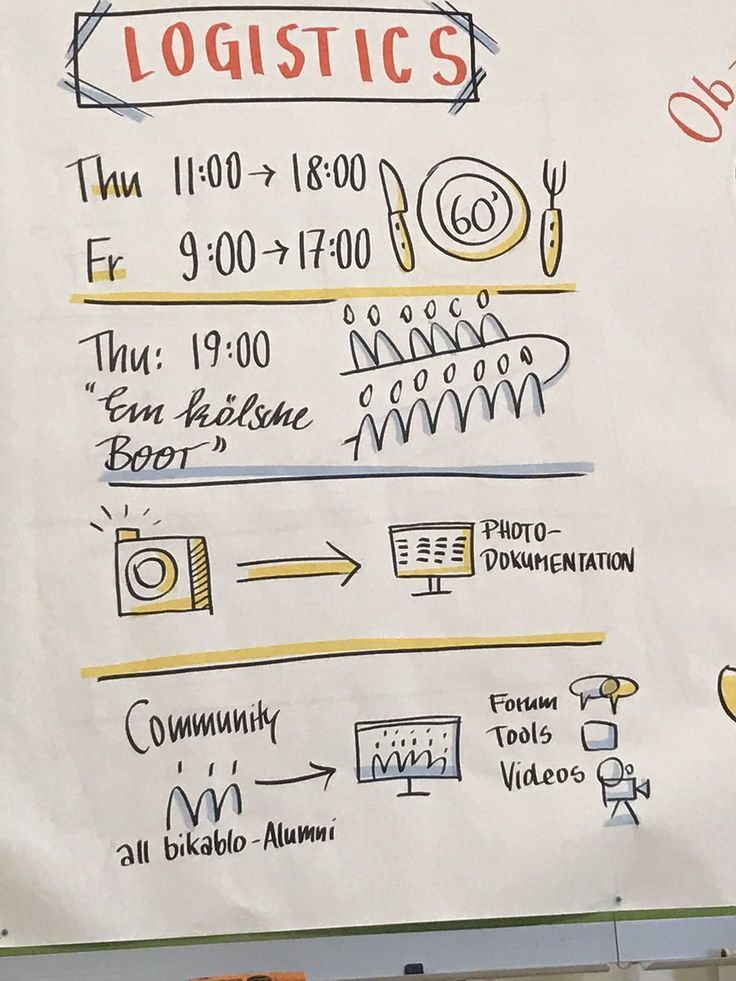 LOGISTICS
Thu 11:00 → 18:00
60'
Fr 9:00 → 17:00
Thu: 19:00
"Em kölsche
BOOT"
PHOTO-
DOKUMENTATION
Community
all bikablo-Alumni
Forum
Tools
Videos
Ob-